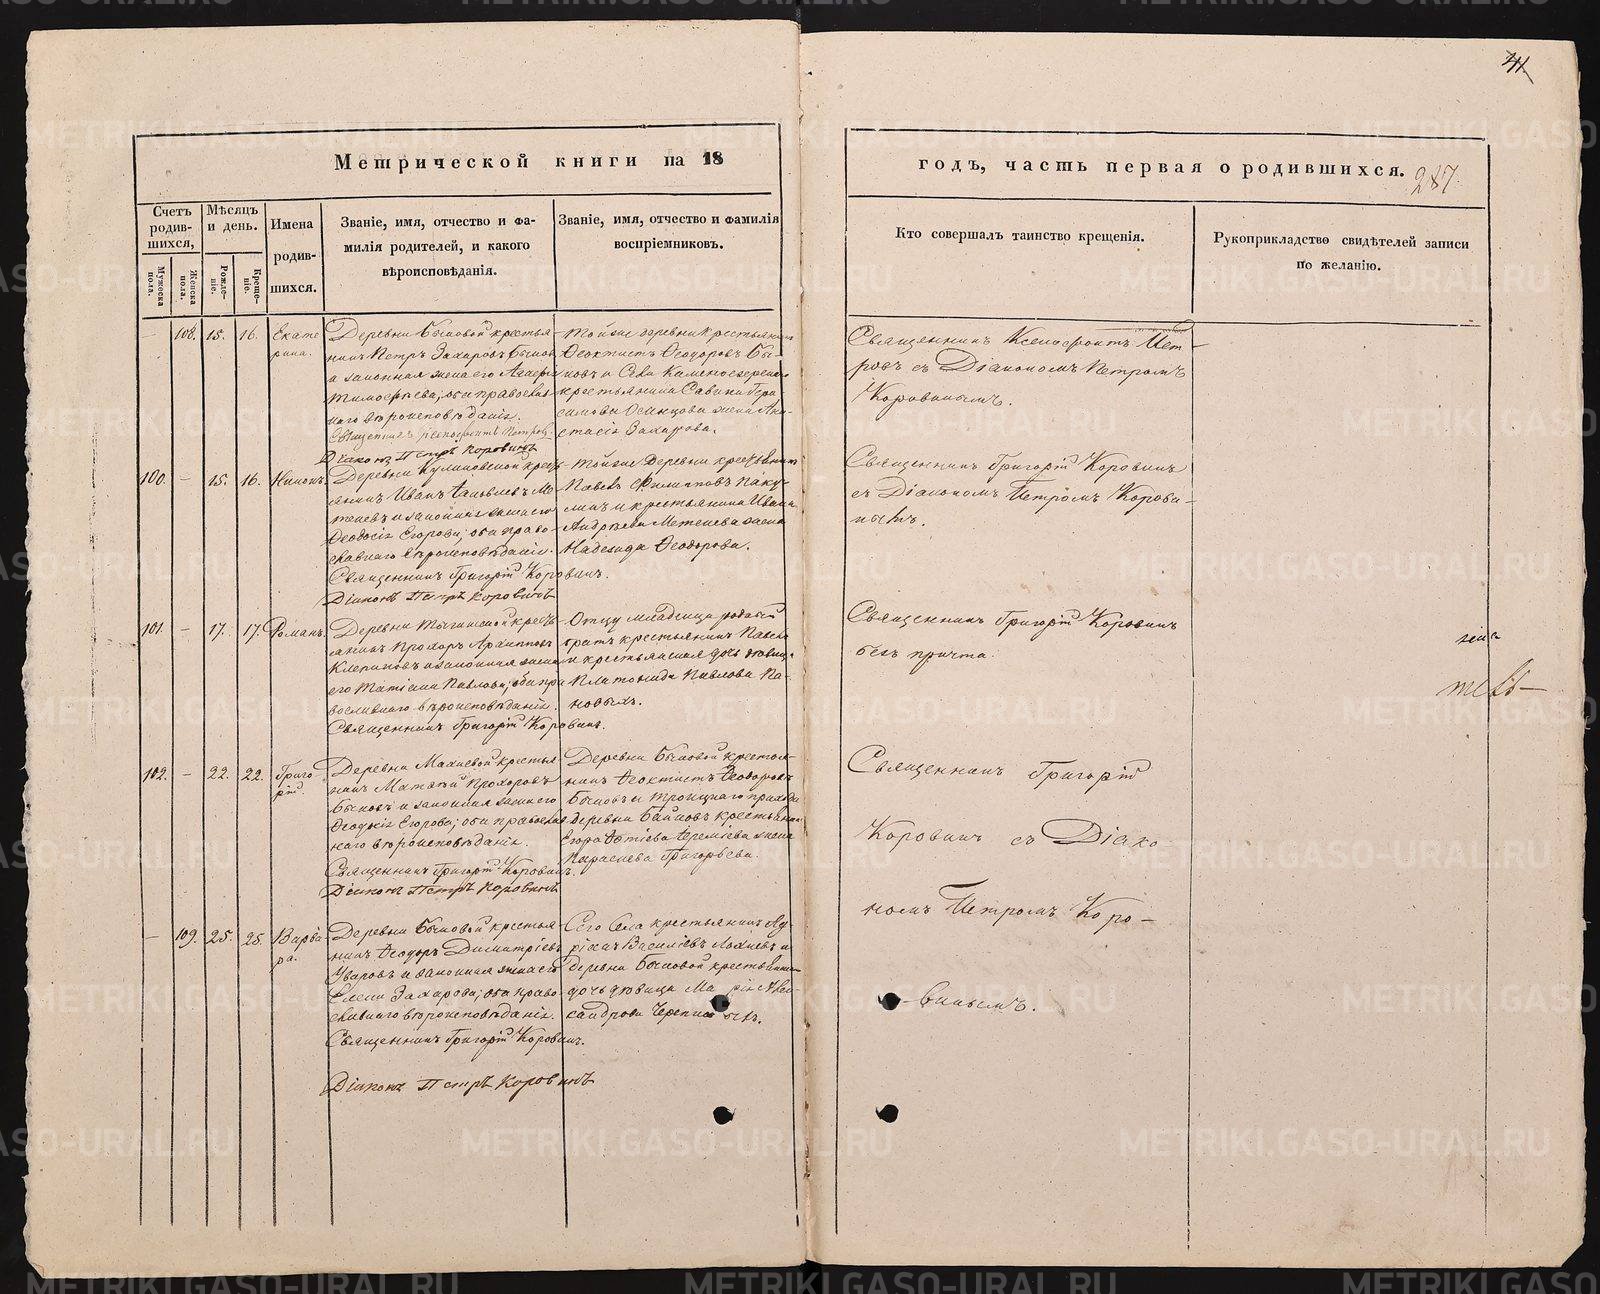 41
Метрической книги на 18
годъ, часть первая о родившихся.
287
Счетъ родив-
шихся,
Мужеска пола.
Женска пола.
Мѣсяцъ
и день.
Рожде-
ніе.
Креще-
ніе.
Имена
родив-
шихся.
Званіе, имя, отчество и фа-
милія родителей, и какого
вѣроисповѣданія.
Званіе, имя, отчество и фамилія
воспріемниковъ.
Кто совершалъ таинство крещенія.
Рукоприкладство свидѣтелей записи
по желанію.
108. 15. 16.
Екате
рина.
Деревни Быковой крестья-
нинъ Петръ Захаровъ Быковъ
а законная жена его
Тимофеева; оба православ
наго вѣроисповѣданія.
Священникъ Ксенофонтъ Петровъ
Діаконъ Петръ Коровинъ
Тойже деревни крестьянинъ
Феоктистъ Феодоровъ Бы-
ковъ и Села
крестьянина Савина Гера-
симова жена Ана-
стасія Захарова.
Священникъ Ксенофонтъ Пет-
ровъ съ Діакономъ Петромъ
Коровинымъ.
100. - 15. 16.
Никонъ.
Деревни крест
янинъ Иванъ Яковлевъ Ме
теневъ и законная жена его
Феодосія Егорова; оба право-
славнаго вѣроисповѣданія.
Священникъ Григорій Коровинъ.
Діаконъ Петръ Коровинъ
Тойже Деревни крестьянинъ
Павелъ Филиповъ Паку-
линъ и крестьянина Ивана
Андрѣева Метенева жена
Надежда Феодорова.
Священникъ Григорій Коровинъ
съ Діакономъ Петромъ Корови-
нымъ.
101. - 17. 17.
Романъ.
Деревни крест
янинъ Прохоръ Архиповъ
и законная жена
его Татіана Павлова; оба пра
вославнаго вѣроисповѣданія.
Священникъ Григорій Коровинъ.
Отцу младенца родной
братъ крестьянинъ Павелъ
и крестьянская дочь дѣвица
Платонида Павлова Па-
новыхъ.
Священникъ Григорій Коровинъ
безъ причта.
102. - 22. 22.
Григо
рій.
Деревни Махневой крестья
нинъ Матвѣй Прохоровъ
Быковъ и законная жена его
Феодосія Егорова; оба православ
наго вѣроисповѣданія.
Священникъ Григорій Коровинъ.
Діаконъ Петръ Коровинъ
Деревни Быковой крестья-
нинъ Феоктистъ Феодоровъ
Быковъ и Троицкаго прихода
деревни крестьянина
Егора жена
Параскева Григорьева.
Священникъ Григорій
Коровинъ съ Діако
номъ Петромъ Коро-
винымъ.
- 109. 25. 25.
Варва
ра.
Деревни Быковой крестья-
нинъ Феодоръ Димитріевъ
Уваровъ и законная жена его
Елена Захарова; оба право
славнаго вѣроисповѣданія.
Священникъ Григорій Коровинъ.
Діаконъ Петръ Коровинъ
Сего Села крестьянинъ Ад-
ріанъ Василіевъ и
деревни Быковой крестьянина
дочь дѣвица Марія Алек-
сандрова
METRIKI.GASO-URAL.RU